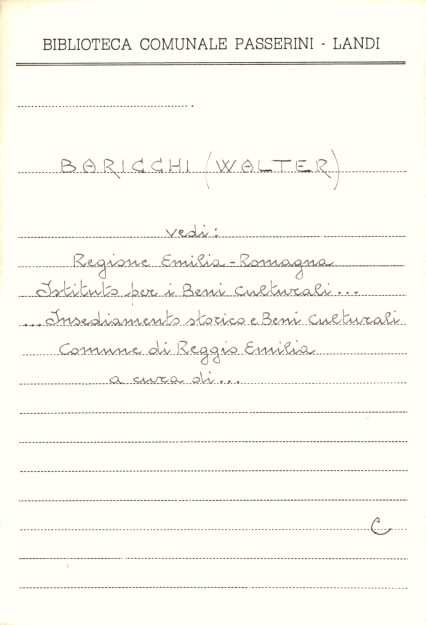 BIBLIOTECA COMUNALE PASSERINI - LANDI
BARICCHI (WALTER)
vedi:
Regione Emilia-Romagna
Istituto per i Beni Culturali...
...Insediamento storico e Beni Culturali
Comune di Reggio Emilia
a cura di...
C